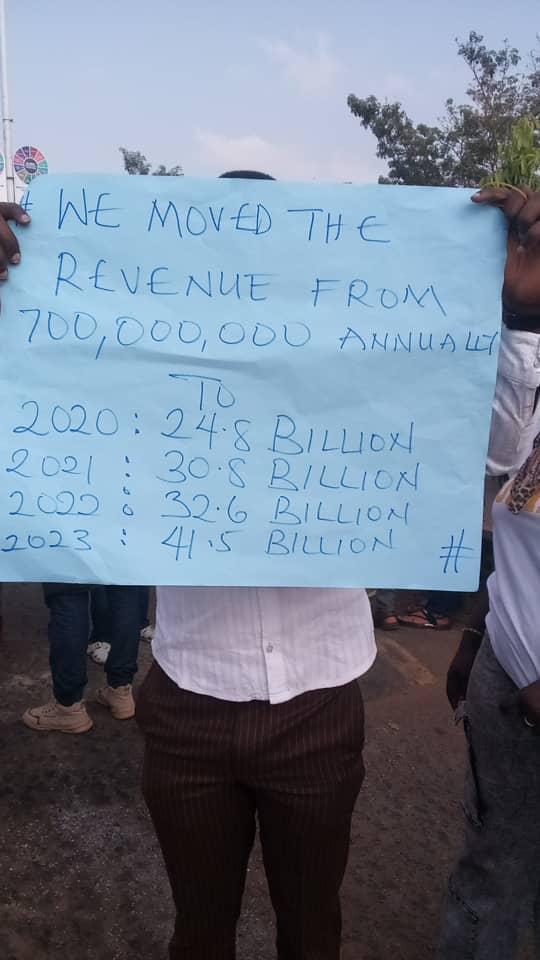 # WE MOVED THE
REVENUE FROM
700,000,000 ANNUALLY
TO
2020: 24.8 BILLION
2021: 30.8 BILLION
2022: 32.6 BILLION
2023: 41.5 BILLION #